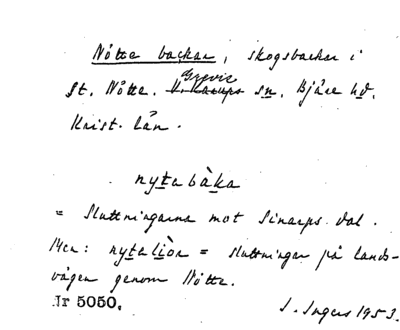 Nötte backar, skogsbackar i
Grevie
St. Nötte. V. Karups sn. Bjäre hd.
Krist. län.
nyta bàka
= Sluttningarna mot Sinarps dal.
Men: nytaliòa = sluttningar på lands-
vägen genom Nötte.
Nr 5050.
I. Ingers 1953.